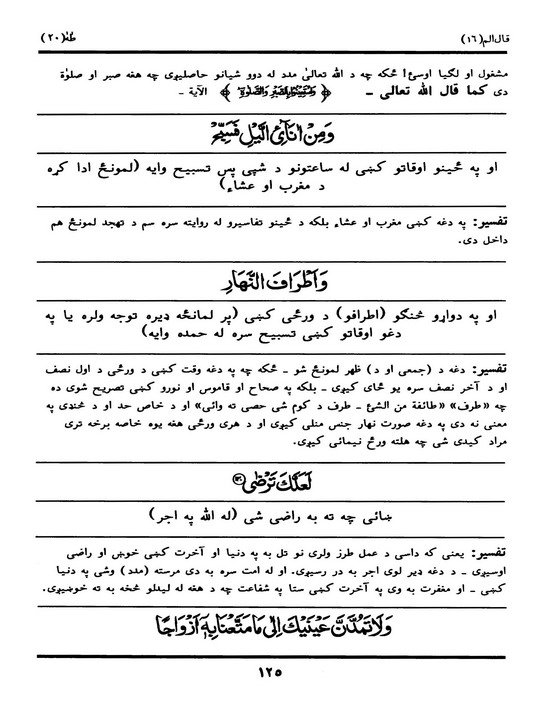 قال الم (١٦)
طٰهٰ (٢٠)
مشغول او لګیا اوسئ! ځکه چه د الله تعالیٰ مدد له دوو شیانو حاصلیږي چه هغه صبر او صلوٰة
دی کما قال الله تعالی ــ ﴿ وَاسْتَعِیْنُوْا بِالصَّبْرِ وَالصَّلٰوةِ ﴾ الآیة ــ
وَمِنْ اٰنَآئِ الَّیْلِ فَسَبِّحْ
او په ځینو اوقاتو کښی له ساعتونو د شپی پس تسبیح وایه (لمونځ ادا کړه
د مغرب او عشاء)
تفسیر: په دغه کښی مغرب او عشاء بلکه د ځینو تفاسیرو له روایته سره سم د تهجد لمونځ هم
داخل دی.
وَاَطْرَافَ النَّهَارِ
او په دواړو څنګو (اطرافو) د ورځی کښی (پر لمانځه ډیره توجه ولره یا په
دغو اوقاتو کښی تسبیح سره له حمده وایه)
تفسیر: دغه د (جمعی او د) ظهر لمونځ شو ــ ځکه چه په دغه وقت کښی د ورځی د اول نصف
او د آخر نصف سره یو ځای کیږی ــ بلکه په صحاح او قاموس او نورو کښی تصریح شوی ده
چه «طرف» «طائفة من الشئ ــ طرف د کوم شی حصی ته وائی» او د خاص حد او د څنډی په
معنی نه دی په دغه صورت نهار جنس منلی کیږی او د هری ورځی هغه یوه خاصه برخه تری
مراد کیدی شی چه هلته ورځ نیمائی کیږی.
لَعَلَّكَ تَرْضٰی ﴿١٣٠﴾
ښائی چه ته به راضی شی (له الله په اجر)
تفسیر: یعنی که داسی د عمل طرز ولری نو تل به په دنیا او آخرت کښی خوښ او راضی
اوسیږی ــ د دغه ډیر لوی اجر به در رسیږی. او له امت سره به دی مرسته (مدد) وشی په دنیا
کښی ــ او مغفرت به وی په آخرت کښی ستا په شفاعت چه د هغه له لیدلو څخه به ته خوښیږی.
وَلَا تَمُدَّنَّ عَیْنَیْكَ اِلٰی مَا مَتَّعْنَا بِهٖۤ اَزْوَاجًا
١٢٥